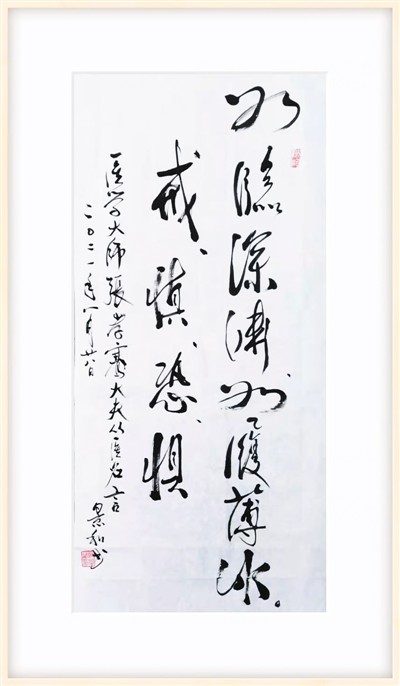 如临深渊如履薄冰。
戒、慎、恐、惧
医学大师張孝骞大夫从医名言
二〇二一年八月廿八日
景和书